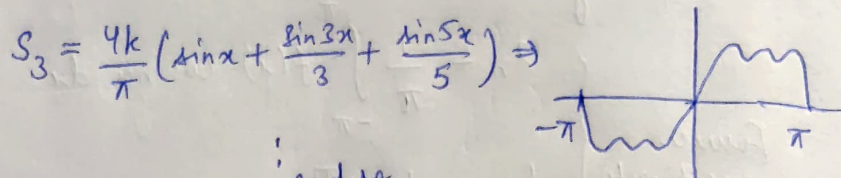 S₃ = 4k/π (sinx + sin3x/3 + sin5x/5) ⇒
-π π
⋮